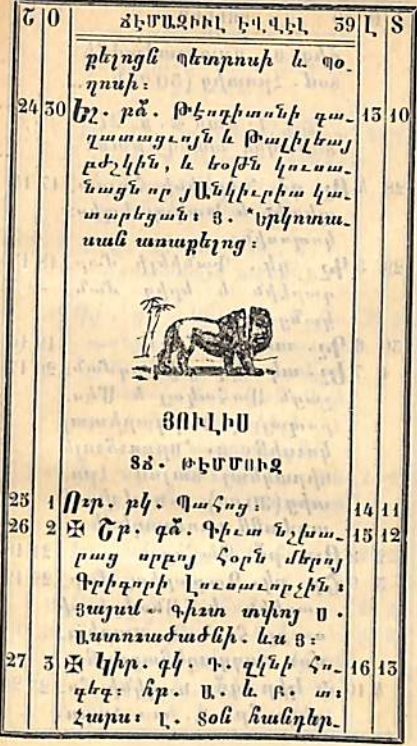 Շ Օ ՃԷՄԱԶԻԻԼ ԷՎՎԷԼ 39 Լ Տ
քելոցն Պետրոսի և Պօ֊
ղոսի։
24 30 Եշ. բձ. Թէոդիտոնի գա֊ 13 10
ղատացւոյն և Թալիլեայ
բժշկին, և եօթն կուսա֊
նացն որ յԱնկիւրիա կա֊
տարեցան։ Յ. Երկոտա֊
սան առաքելոց։
ՅՈՒԼԻՍ
ՏՃ. ԹԷՄՄՈՒԶ
25 1 Ուր. բկ. Պահոց։ 14 11
26 2 ✠ Շր. գձ. Գիւտ նշխա֊ 15 12
րաց սրբոյ Հօրն մերոյ
Գրիգորի Լուսաւորչին։
Յայսմ գիշտ տփոց ս.
Աստուածածնի. ևս Յ։
27 3 ✠ Կիր. գկ. Գ. զկնի Հո֊ 16 13
գեգ։ հր. Ա. և Բ. տ։
Հարս։ Լ. Տօն հանդեր֊